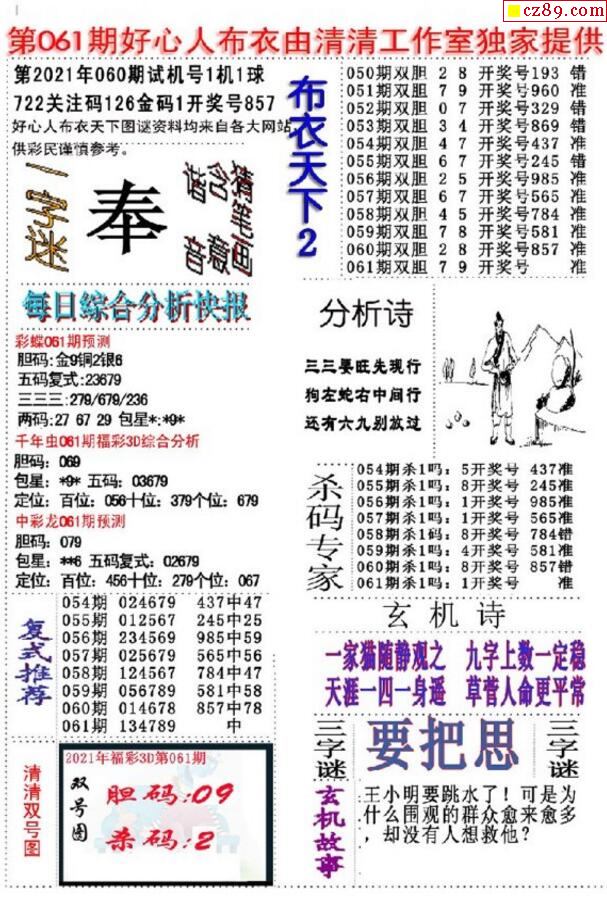 cz89.com
第061期好心人布衣由清清工作室独家提供
第2021年060期试机号1机1球
722关注码126金码1开奖号857
好心人布衣天下图谜资料均来自各大网站
供彩民谨慎参考。
一字谜
奉
猜笔画
含意
谐音
每日综合分析快报
彩蝶061期预测
胆码:金9铜2银6
五码复式:23679
三三三:279/679/236
两码:27 67 29 包星*:*9*
千年虫061期福彩3D综合分析
胆码: 069
包星: *9* 五码: 03679
定位: 百位: 056十位: 379个位: 679
中彩龙061期预测
胆码: 079
包星: **6 五码复式: 02679
定位: 百位: 456十位: 279个位: 067
复式推荐
054期 024679 437中47
055期 012567 245中25
056期 234569 985中59
057期 025679 565中56
058期 124567 784中47
059期 056789 581中58
060期 014678 857中78
061期 134789 中
清清双号图
2021年福彩3D第061期
双号图
胆码:09
杀码:2
布衣天下2
050期双胆 2 8 开奖号193 错
051期双胆 7 9 开奖号960 准
052期双胆 0 7 开奖号329 错
053期双胆 3 4 开奖号869 错
054期双胆 4 7 开奖号437 准
055期双胆 6 7 开奖号245 错
056期双胆 2 5 开奖号985 准
057期双胆 6 7 开奖号565 准
058期双胆 4 5 开奖号784 准
059期双胆 7 8 开奖号581 准
060期双胆 2 8 开奖号857 准
061期双胆 7 9 开奖号 准
分析诗
三三要旺先现行
狗左蛇右中间行
还有六九别放过
杀码专家
054期杀1吗: 5开奖号 437准
055期杀1吗: 8开奖号 245准
056期杀1吗: 1开奖号 985准
057期杀1吗: 1开奖号 565准
058期杀1码: 8开奖号 784错
059期杀1吗: 4开奖号 581准
060期杀1吗: 8开奖号 857错
061期杀1吗: 1开奖号 准
玄机诗
一家猫随静观之 九字上数一定稳
天涯一四一身遥 草菅人命更平常
三字谜
要把思
三字谜
玄机故事
王小明要跳水了！可是为
什么围观的群众愈来愈多
，却没有人想救他？